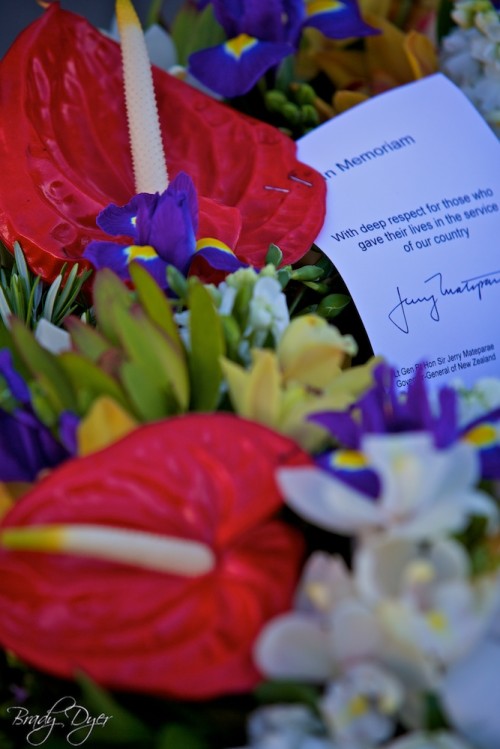 n Memoriam
With deep respect for those who
gave their lives in the service
of our country
Jerry Mateparae
Lt Gen Rt Hon Sir Jerry Mateparae
Governor-General of New Zealand
Brady Dyer